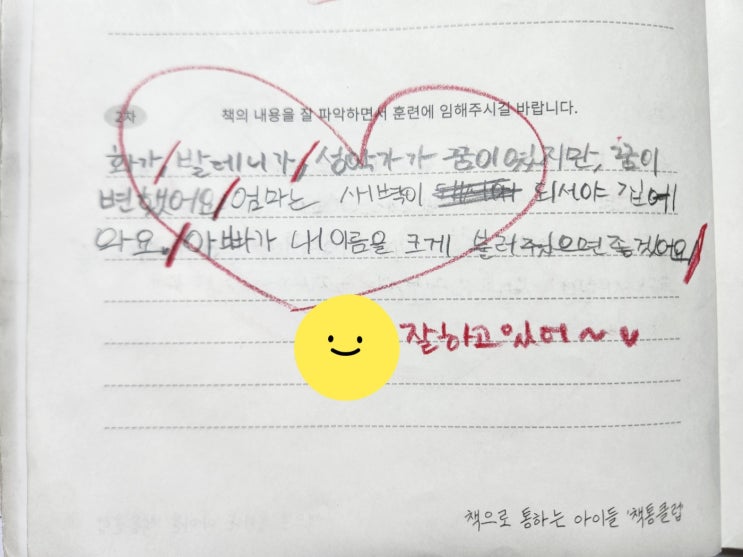 2차
책의 내용을 잘 파악하면서 훈련에 임해주시길 바랍니다.
화가, 발레니가, 성악가가 꿈이 있지만, 꿈이
변했어요 엄마는 새벽이 되서야 집에
와요. 아빠가 내 이름을 크게 불러줬으면 좋겠어요
잘하고있어~♥
책으로 통하는 아이들 '책통클럽